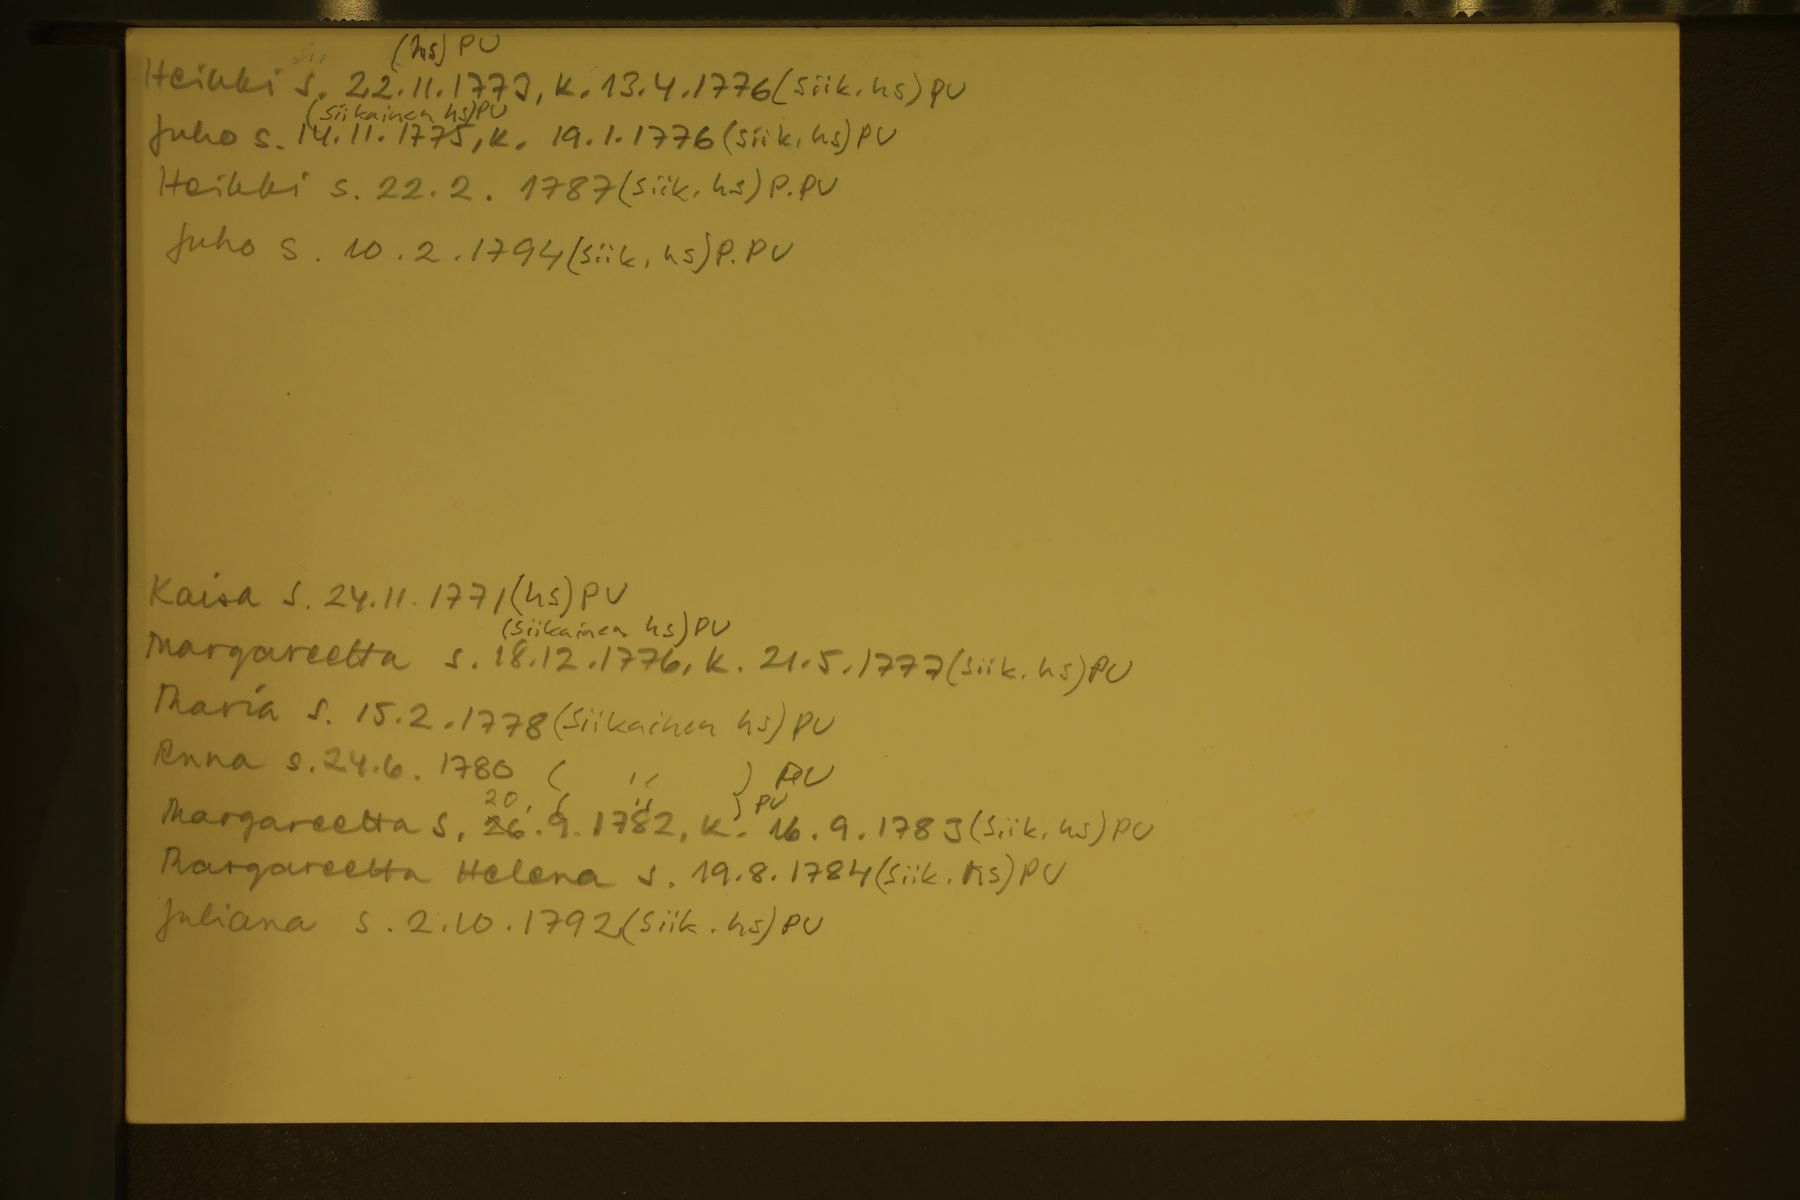 (hs) PU
Heikki s. 22.11.1773, k. 13.4.1776 (siik. hs) PU
(Siikainen hs) PU
Juho s. 14.11.1775, k. 19.1.1776 (siik. hs) PU
Heikki s. 22.2. 1787 (siik. hs) P.PU
Juho s. 10.2.1794 (siik. hs) P.PU
Kaisa s. 24.11.1771 (hs) PU
(Siikainen hs) PU
Margareetta s. 18.12.1776, k. 21.5.1777 (siik. hs) PU
Maria s. 15.2.1778 (Siikainen hs) PU
Anna s. 24.6. 1780 ( " ) PU
20. ( " ) PU
Margareetta s. 26.9.1782, k. 16.9.1783 (Siik. hs) PU
Margareetta Helena s. 19.8.1784 (siik. hs) PU
Juliana s. 2.10.1792 (Siik. hs) PU